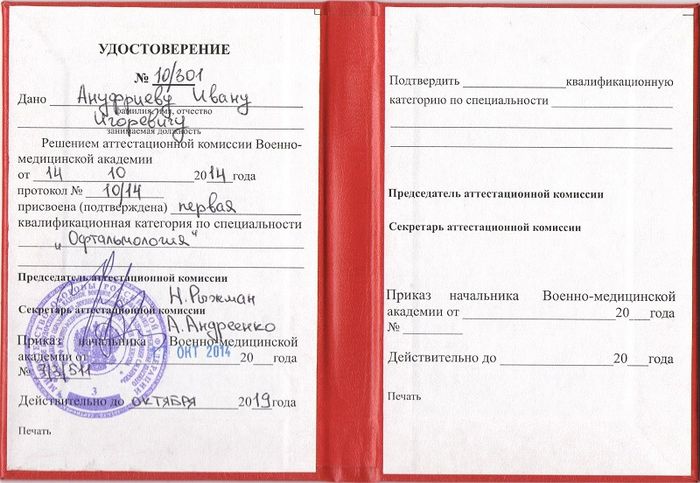 УДОСТОВЕРЕНИЕ
№ 10/301
Дано Ануфриеву Ивану
фамилия, имя, отчество
Игоревичу
занимаемая должность
Решением аттестационной комиссии Военно-
медицинской академии
от 14 10 2014 года
протокол № 10/14
присвоена (подтверждена) первая
квалификационная категория по специальности
"Офтальмология"
Председатель аттестационной комиссии
Н. Рыжман
Секретарь аттестационной комиссии
А. Андреенко
Приказ начальника Военно-медицинской
академии от ОКТ 2014 20 года
№
Действительно до ОКТЯБРЯ 2019 года
Печать
Подтвердить квалификационную
категорию по специальности
Председатель аттестационной комиссии
Секретарь аттестационной комиссии
Приказ начальника Военно-медицинской
академии от 20 года
№
Действительно до 20 года
Печать